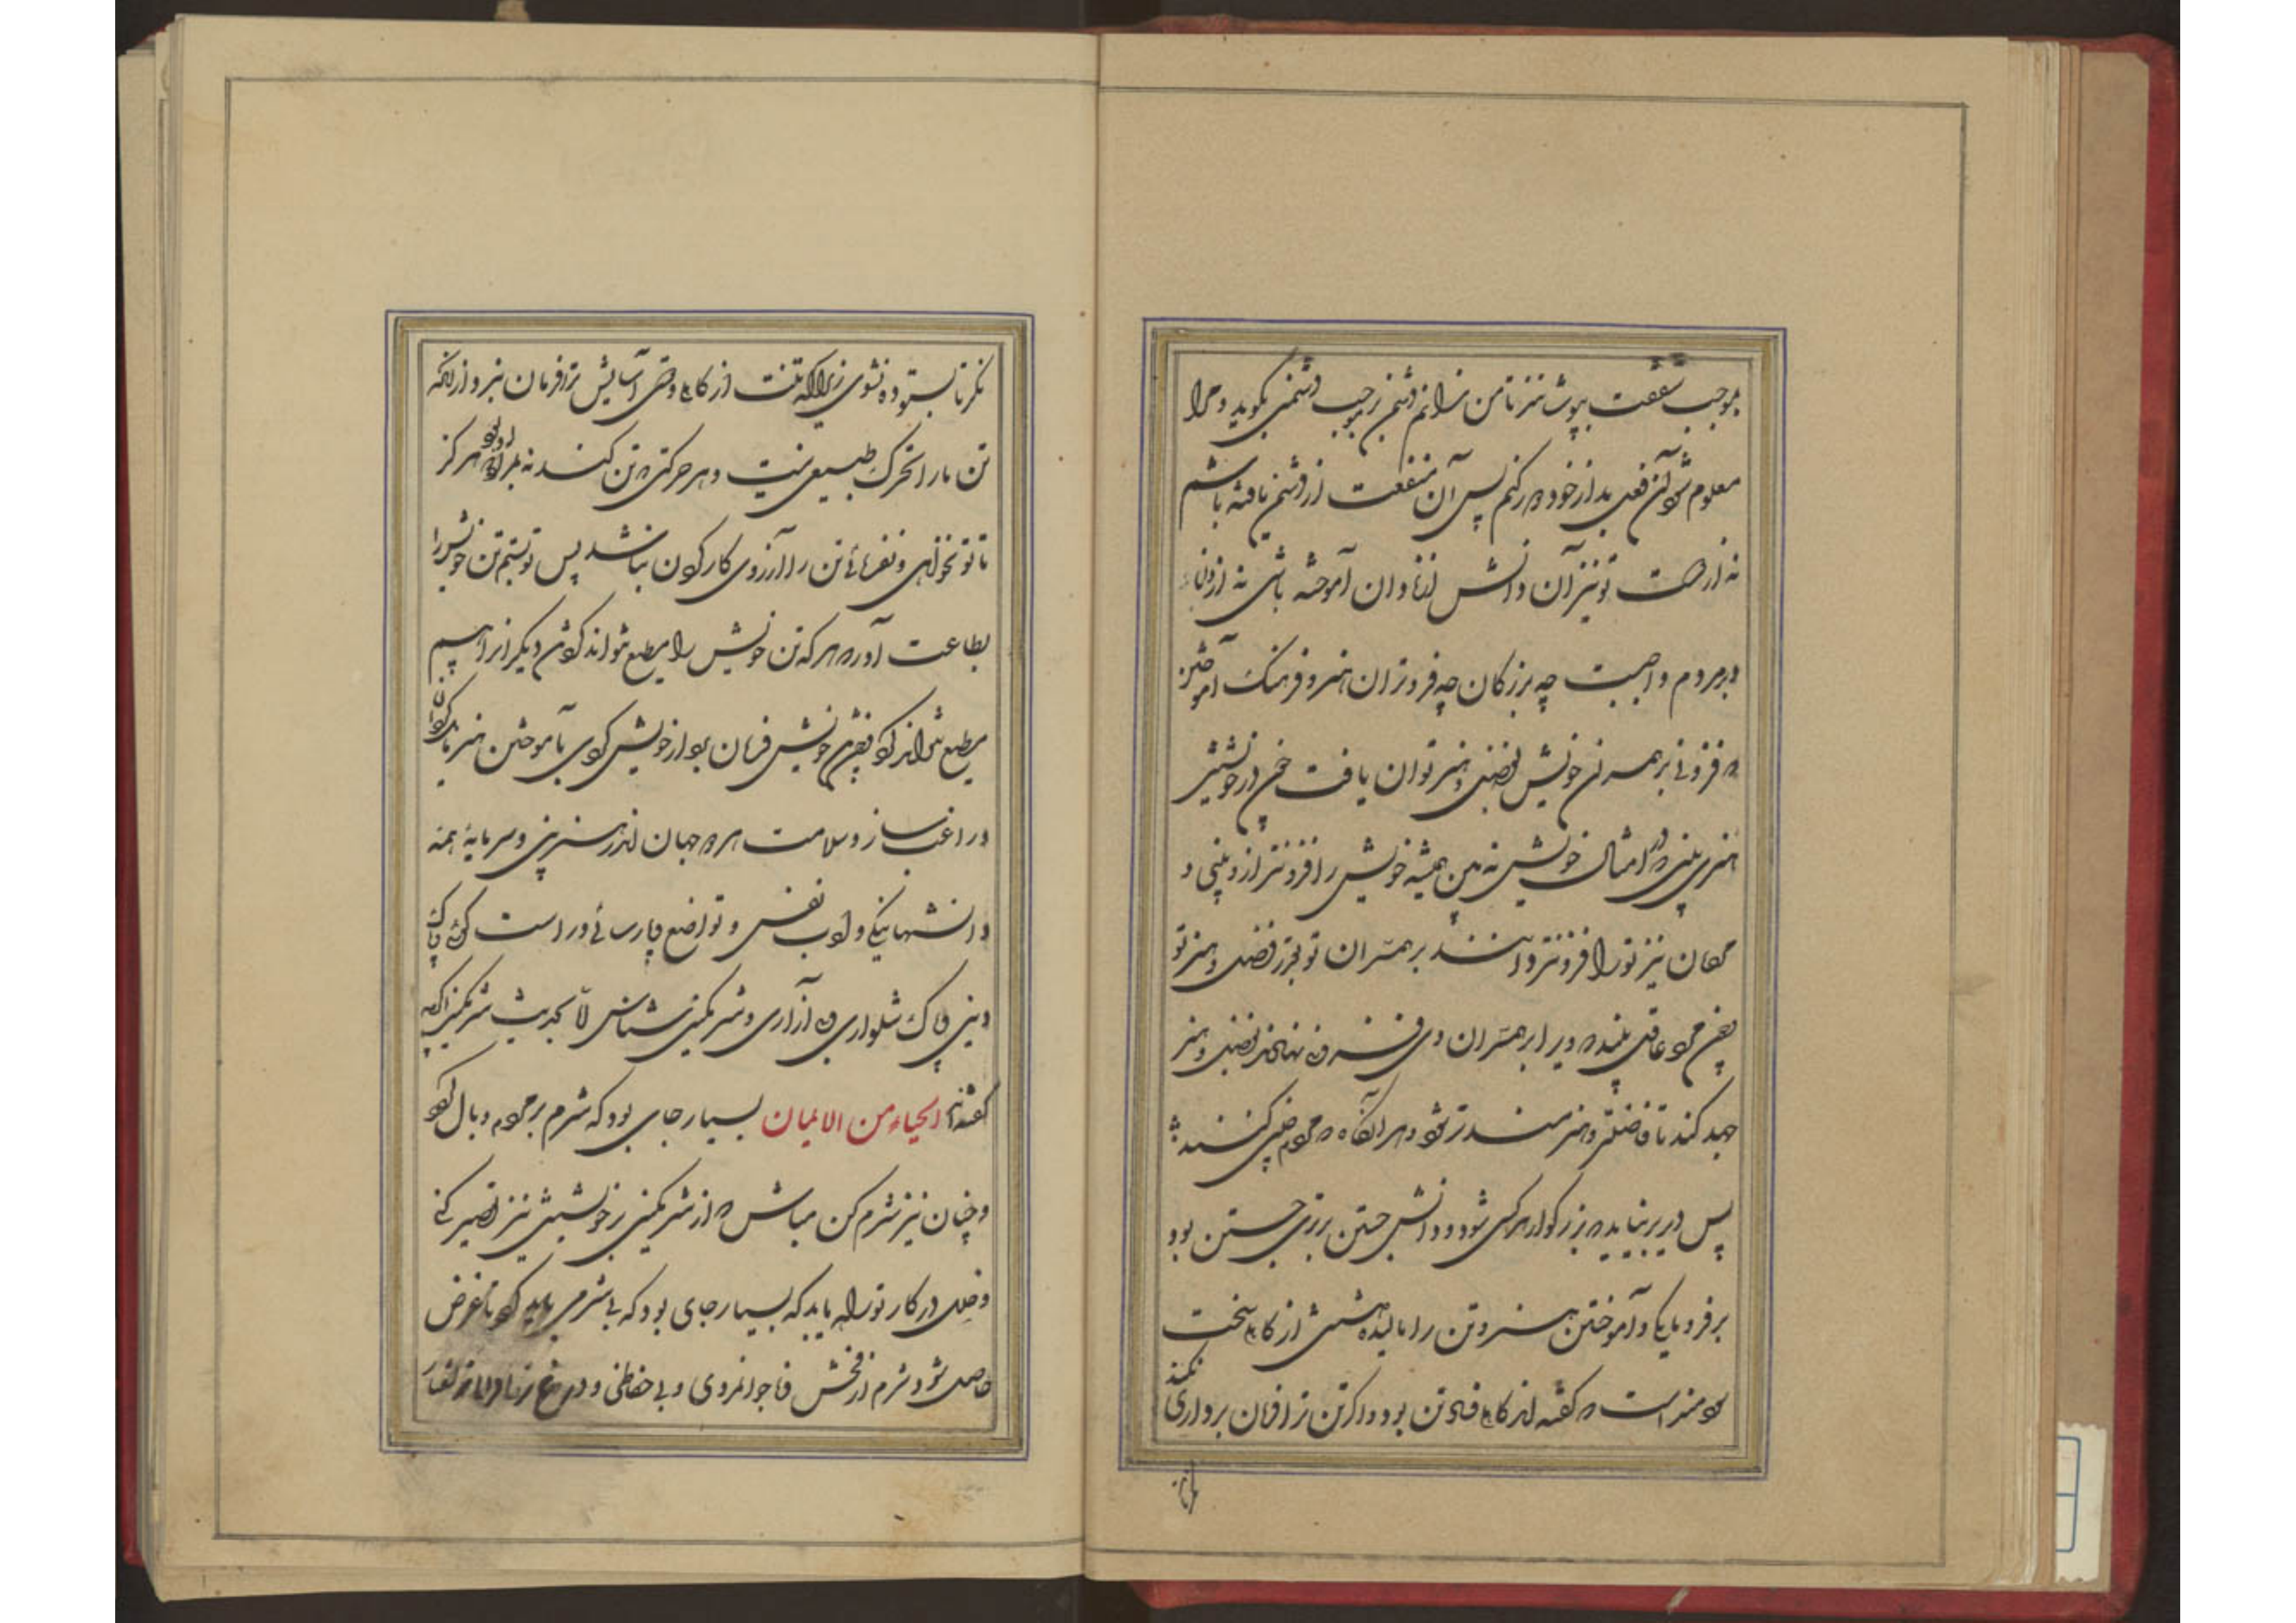 بموجب شفقت بپوشانند تا من ندانم دشمن بموجب دشمنی بگوید و مرا
معلوم شود آن فعل بد از خود دور کنم پس آن منفعت از دشمن یافته باشم
نه از دوست تو نیز آن دانش از نادان آموخته باشی نه از دانا
و بر مردم واجبست چه بر بزرگان چه فروتران هنر و فرهنگ آموختن
که فزونی بر همسران خویش بفضل و هنر توان یافت چون در خویشتن
هنری بینی که در امثال خویش نه بینی همیشه خویش را افزونتر از او بینی و
مردمان نیز تو را افزونتر دانند بر همسران تو بقدر فضل و هنر تو
چون مرد عاقل بیند که ویرا بر همسران وی فزونی نهادند بفضل و هنر
جهد کند تا فاضلتر و هنرمندتر شود و هر آنگاه که مردم چنین کنند
پس دیر بنپاید که بزرگوار هر کسی شود و دانش جستن برتری جستن بود
بر فرومایگی و آموختن هنر و تن را مالیده داشتن از کاهلی سخت
سودمند است که گفته‌اند کاهلی فساد تن بود و اگر تن ترا فرمان برداری نکند
نگر تا ستوده نشوی زیرا که تنت از کاهلی و دوستی آسایش ترا فرمان نبرد از آنکه
تن ما را تحرک طبیعی نیست و هر حرکتی که تن کند نه بمراد هرگز
تا تو نخواهی و نفرمائی تن را آرزوی کار کردن نباشد پس تو بستم تن خویش را
بطاعت آور که هر که تن خویش را مطیع نتواند کردن دیگران را هم
مطیع نتواند کرد چون تن خویش فرمان بردار خویش کردی بآموختن هنر بدان
در اغب ساز و سلامت هر دو جهان اندر هنر بینی و سرمایهٔ همه
دانشها نیکی و ادب نفس و تواضع و پارسائی و راست گوئی و پاک
دینی و پاک شلواری و بی آزاری و شرمگینی شناس اما بحدیث شرمگینی اگرچه
گفته‌اند الحیاء من الایمان بسیار جای بود که شرم بر مردم وبال بود
و چنان نیز شرم‌گن مباش که از شرمگینی در خویشتن نیز تقصیر کنی
و خلل در کار تو راه یابد که بسیار جای بود که بی شرمی باید کرد تا غرض
حاصل شود شرم از فحش و ناجوانمردی و بی حفاظی و دروغ زنی
نگر تا